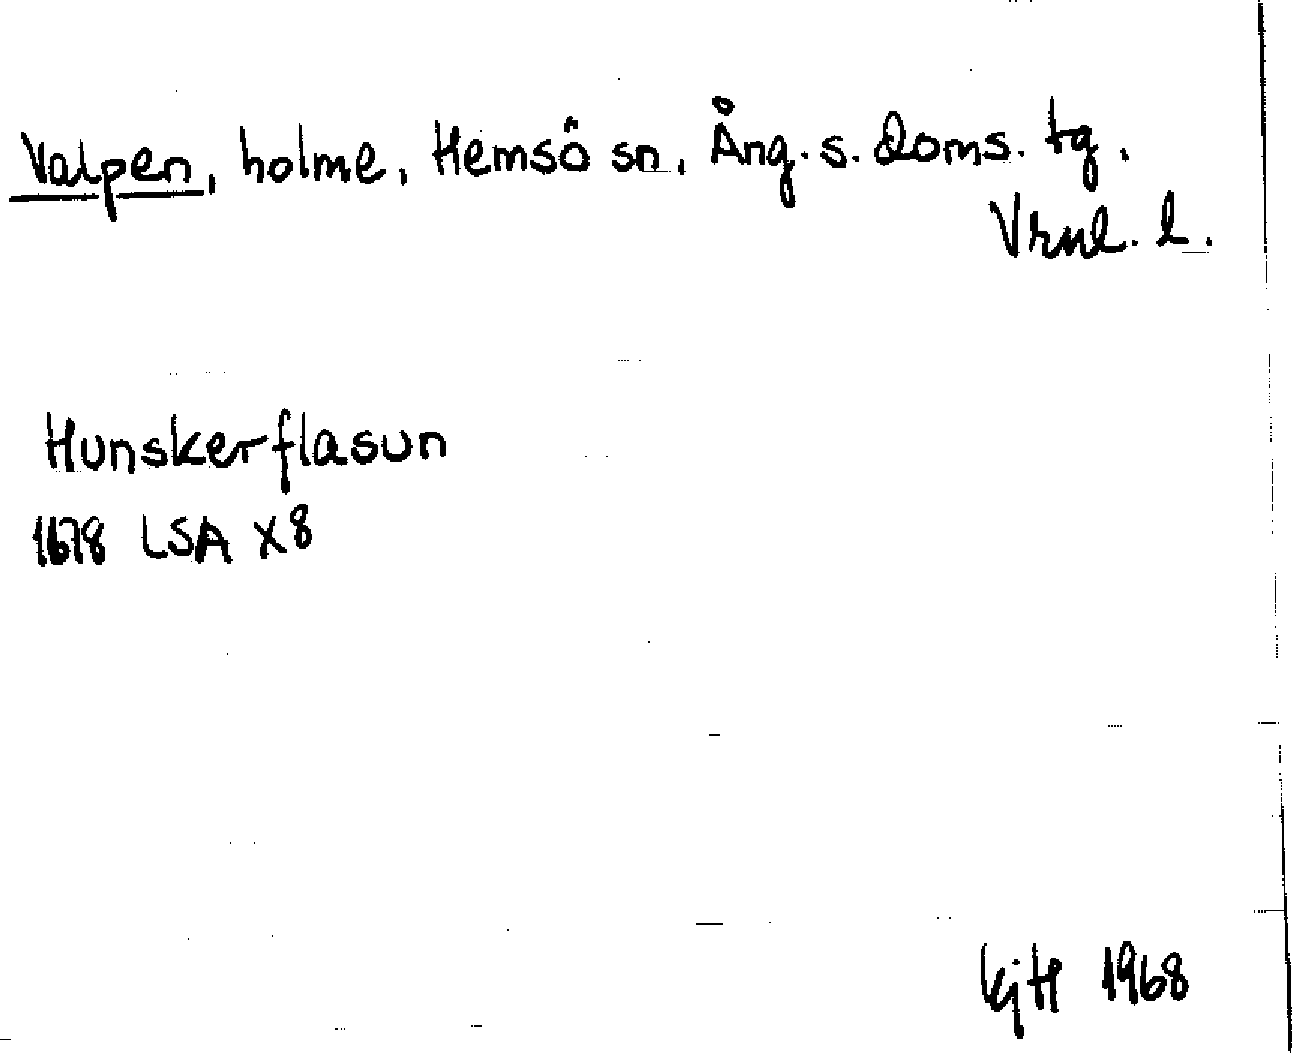 Valpen, holme, Hemsö sn, Ång. s. doms. tg.
Vrnl. l.
Hunskerflasun
1678 LSA X8
KjH 1968